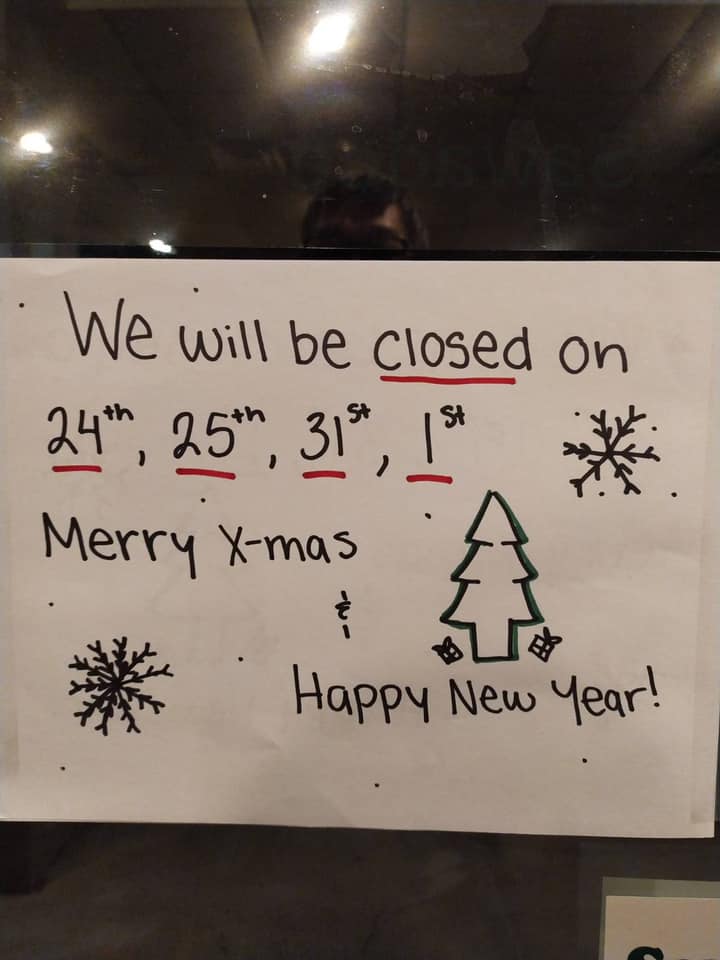 We will be closed on
24th, 25th, 31st, 1st
Merry X-mas
&
Happy New Year!